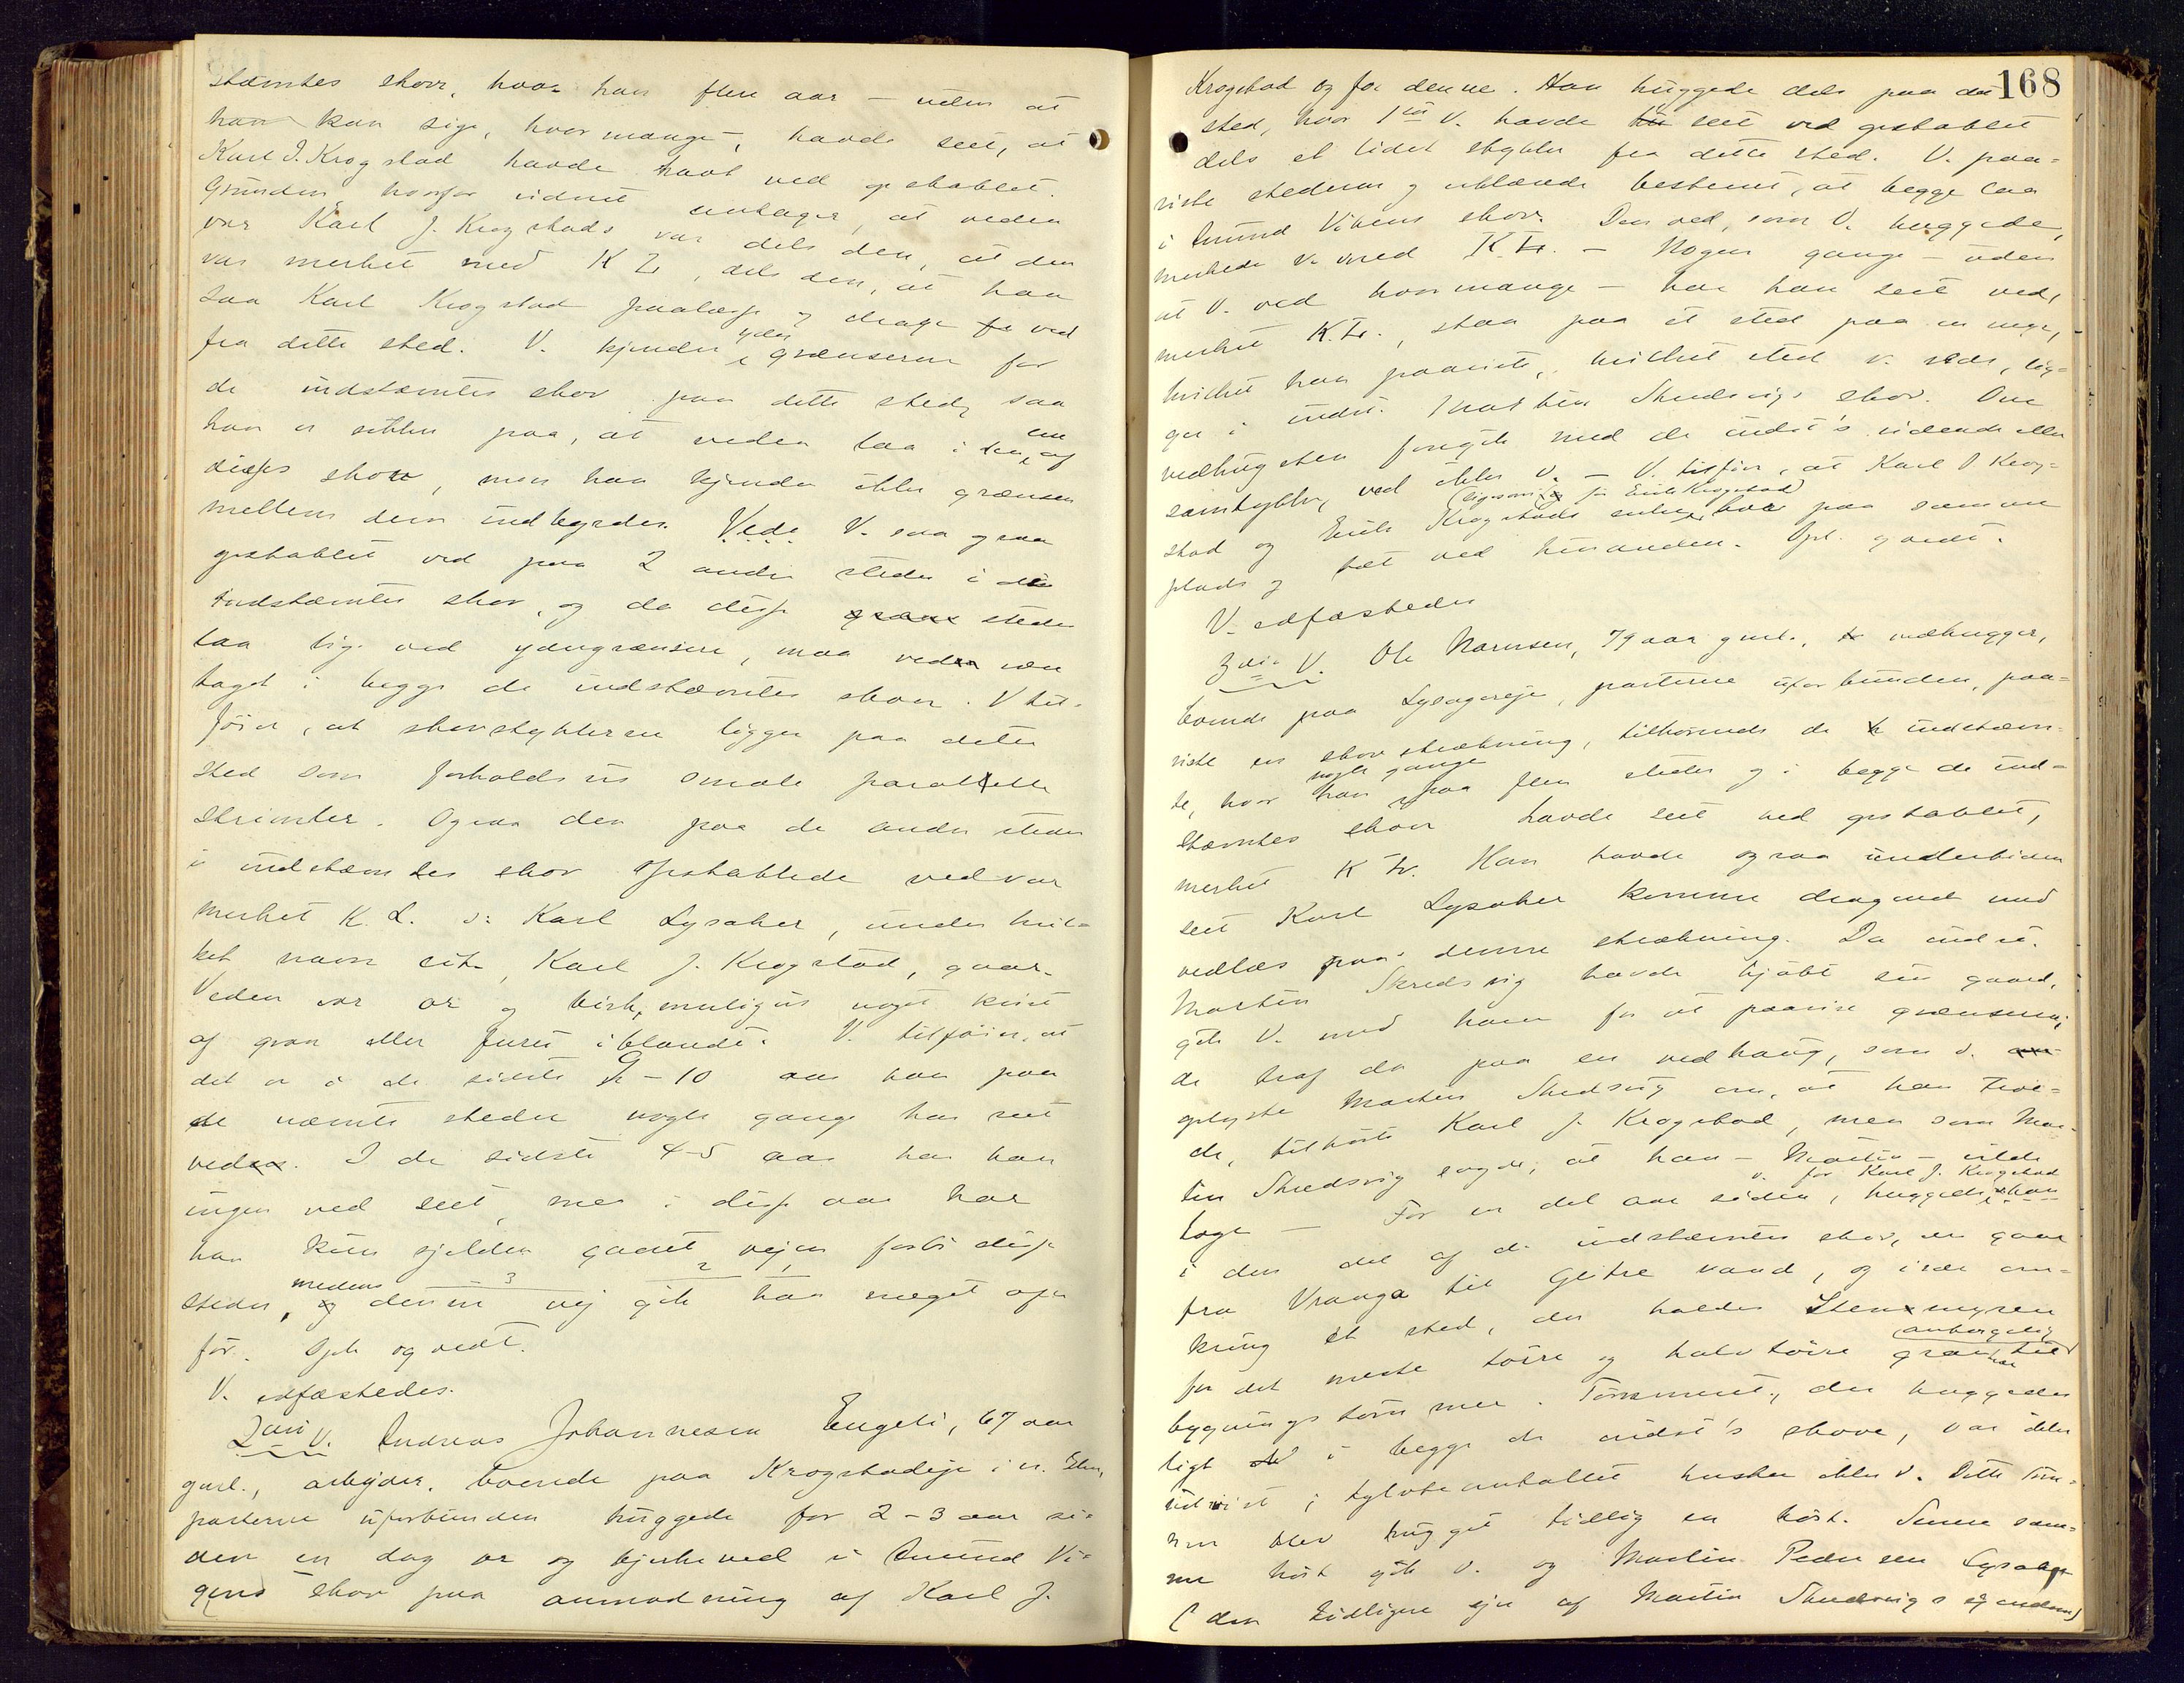 stæmtes skove, hvor han flere aar – uden at
han kan sige, hvor mange –, havde seet, at
Karl J. Krogstad havde havt ved opstablet.
Grunden hvorfor vidnet antager, at veden
var Karl J. Krogstads var dels den, at den
var merket med K L, dels den, at han
saa Karl Krogstad paalæsse og drage ved
fra dette sted. V. kjender yder grænserne for
de indstæmtes skov paa dette sted, saa
han er sikker paa, at veden laa i en af
disses skove, men han kjender ikke grænsen
mellem dem indbyrdes. Veds V. saa ogsaa
opstablet ved paa 2 andre steder i de
indstæmtes skov, og da disse steder
laa lige ved ydergrænsene, maa veden være
taget i begge de indstæmtes skove. V til-
føier, at skovstykkerne ligger paa dette
sted som forholdsvis smale paralelle
strimler. Ogsaa den paa de andre steder
i indstæmtes skov opstablede ved var
merket K. L. ɔ: Karl Lysaker, under hvil-
ket navn cit. Karl J. Krogstad, gaar.
Veden var or og birk, muligvis noget kvist
af gran eller furu iblandt. V. tilføier, at
det er i de sidste 9 – 10 aar han paa
de nævnte steder nogle gange har seet
ved. I de sidste 4-5 aar har han
ingen ved seet, men i disse aar har
han kun sjelden gaaet vejen forbi disse
steder, medens denne vej gik han meget ofte
før. Opl. og vedt.
V. edfæstedes.
2det V. Andreas Johannesen Engeli, 67 aar
gml., arbejder, boende paa Krogstadeje i
parterne uforbunden huggede for 2 – 3 aar si-
den en dag or og bjerkeved i Amund Vi-
gens skov paa anmodning af Karl J.
168
Krogstad og for denne. Han huggede dels paa det
sted, hvor 1ste V. havde seet ved opstablet
dels et lidet stykke fra dette sted. V. paa-
viste stederne og erklærede bestemt, at begge laa
i Amund Vikens skov. Den ved, som V. huggede,
merkede V. med K L. – Nogen gange – uden
at V. ved hvor mange – har han seet ved,
merket K. L., staa paa et sted paa en myr,
hvilket han paaviste, hvilket sted v. veds, lig-
ger i indst. Martin Skredsvigs skov. Om
vedhugsten foregik med de indst's vidende eller
samtykke, ved ikke V. – V. tilføier, at Karl J Krog-
stad og Erik Krogstads enke (ligesom før Erik Krogstad) bor paa samme
plads og tæt ved hinanden. Opl. og vedt.
V. edfæstedes
3die V. Ole Hansen, 79 aar gml., vedhugger,
boende paa Lysagereje, parterne uforbunden, paa-
viste en skovstrækning, tilhørende de indstæm-
te, hvor han nogle gange paa flere steder og i begge de ind-
stæmtes skove havde seet ved opstablet,
merket K L. Han havde ogsaa undertiden
seet Karl Lysaker komme dragende med
vedlæs paa denne strækning. Da indst.
Martin Skredsvig havde kjøbt sin gaard,
gik V. med ham for at paavise grænserne;
de traf da paa en vedhaug, som V.
oplyste Martin Skredsvig om, at han troe-
de, tilhørte Karl J. Krogstad, men som Mar-
tin Skredsvig sagde, at han – Martin – vilde
tage – For en del aar siden, huggede v. for Karl J. Krogstad
i den del af de indstæmtes skov, der gaar
fra Vranga til Glitre vand, og især om-
kring et sted, der kaldes Stenmyren
for det meste tørre og halvtørre gran til
bygningstømmer. Tømmeret, der huggedes
ligt i begge de indst's skove, var ikke
udvist; tylvteantallet husker ikke V. Dette tøm-
mer blev hugget tidlig en høst. Senere sam-
me høst gik V. og Martin Pedersen Lysaker
(den tidligere ejer af Martin Skredsvigs ejendom)